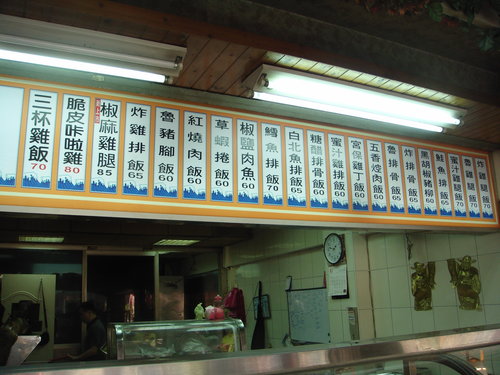 三杯雞飯 70
脆皮咔啦雞 80
椒麻雞腿 85
炸雞排飯 65
魯豬腳飯 60
紅燒肉飯 60
草蝦捲飯 60
椒鹽肉魚 60
鱈魚排飯 70
白北魚排飯 65
糖醋排骨飯 60
蜜汁雞排飯 65
宮保雞丁飯 60
五香焢肉飯 60
魯排骨飯 60
炸排骨飯 65
黑胡椒豬柳 60
鮭魚排飯 65
蜜汁雞腿飯 70
魯雞腿飯 70
炸雞腿飯 70